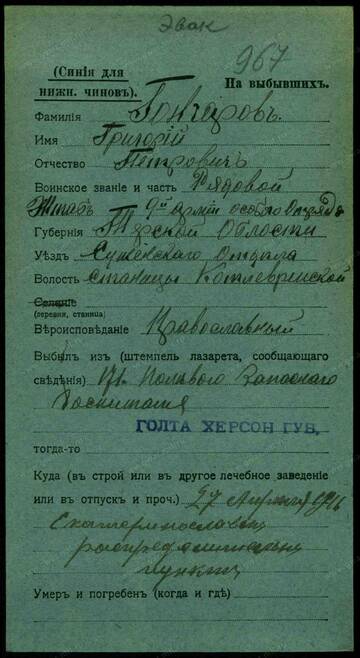 Эвак
967
(Синія для
нижн. чиновъ).
На выбывшихъ.
Фамилія Гончаровъ.
Имя Григорій
Отчество Петровичъ
Воинское званіе и часть Рядовой
Штабъ 9й арміи особого Отряда
Губернія Терской Области
Уѣздъ Сунженскаго Отдѣла
Волость станицы
Селеніе
(деревня, станица)
Вѣроисповѣданіе Православный
Выбылъ изъ (штемпель лазарета, сообщающаго
свѣдѣнія) Полевого Запаснаго
Госпиталя
ГОЛТА ХЕРСОН ГУБ.
тогда-то
Куда (въ строй или въ другое лечебное заведеніе
или въ отпускъ и проч.) 27 Апрѣля 1916
распределительный
пунктъ
Умеръ и погребенъ (когда и гдѣ)